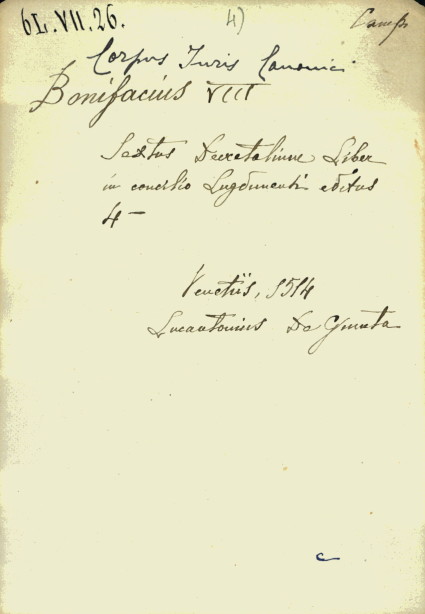 6L.VII.26.
4)
Camp
Corpus Iuris Canonici
Bonifacius VIII
Sextus Decretalium Liber
in concilio Lugdunensi editus
4 –
Venetiis, 1514
Lucantonius De Giunta
c